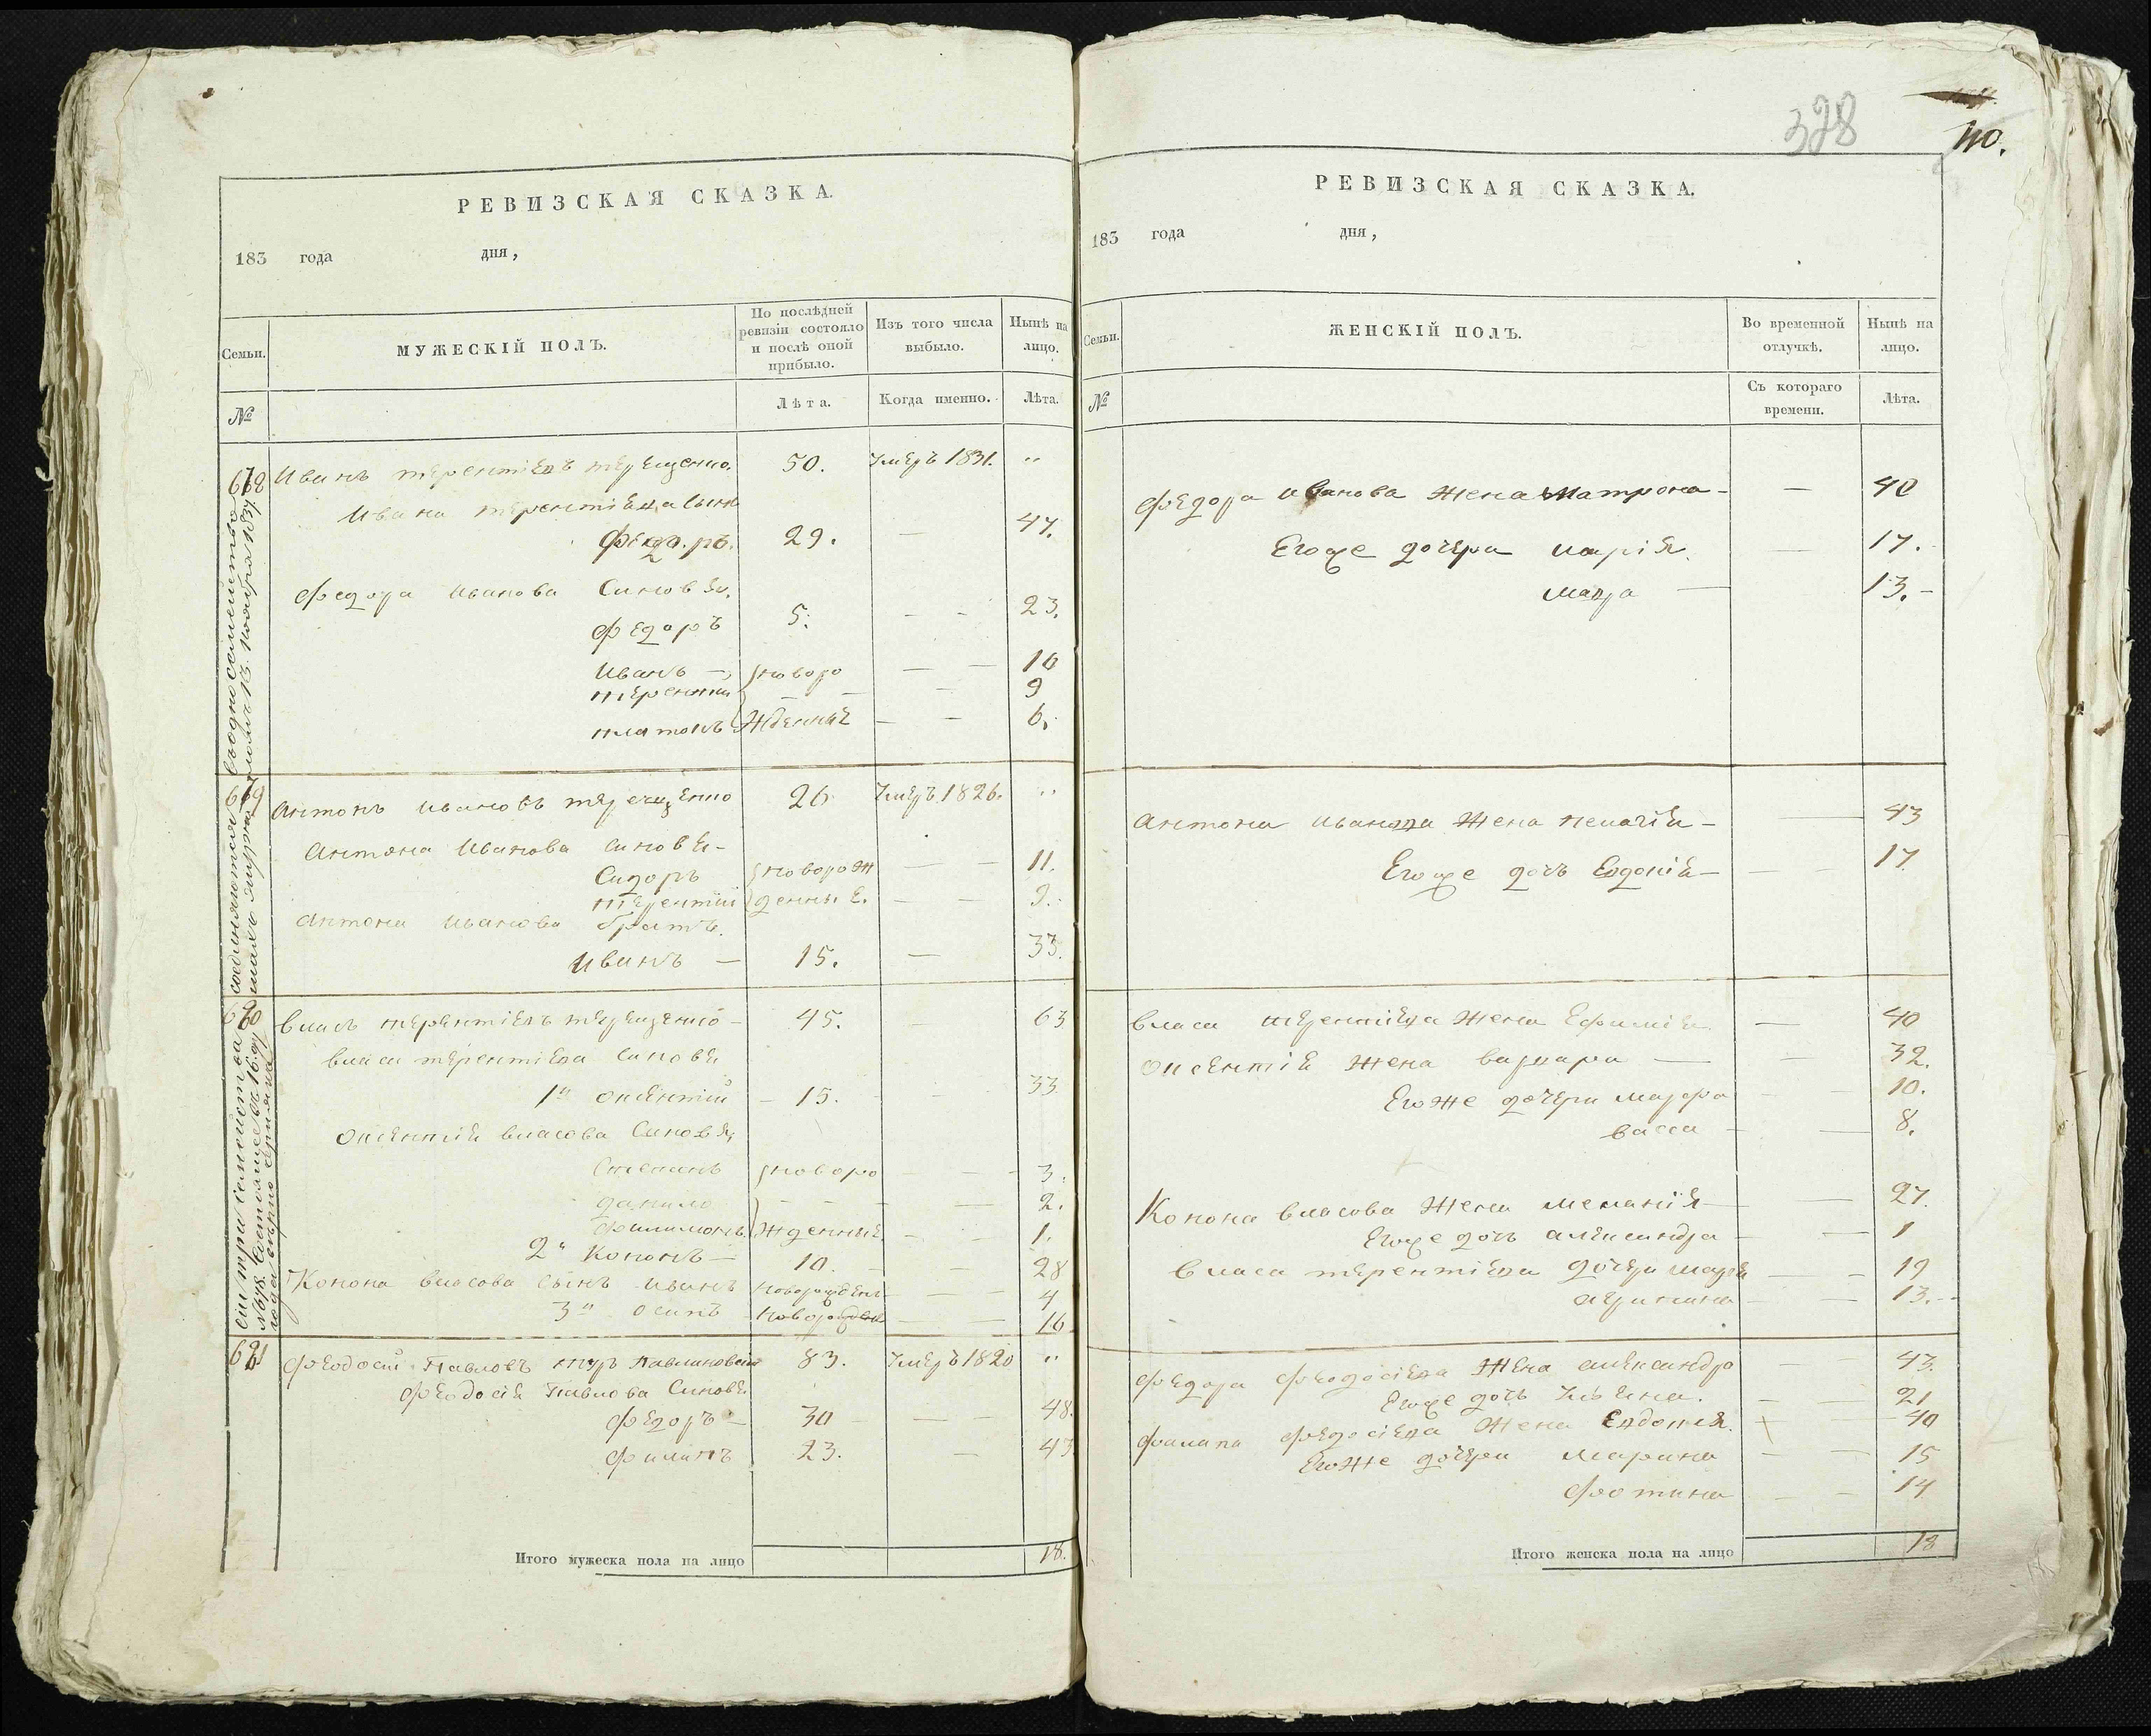 328
110.
РЕВИЗСКАЯ СКАЗКА.
183 года дня,
Семьи. МУЖЕСКІЙ ПОЛЪ. По послѣдней ревизіи состояло и послѣ оной прибыло. Изъ того числа выбыло. Нынѣ на лицо.
№ Лѣта. Когда именно. Лѣта.
Иванъ терентіевъ терещенко 50. Умеръ 1831. "
Ивана терентіева сынъ
Федоръ. 29. — 47.
Федора Иванова Синовья,
Федоръ 5. — 23.
Иванъ — новоро — 10
терентий — 9
платонъ жденные — 6.
Антонъ Ивановъ терещенко 26 Умеръ 1826. "
Антона Иванова синовья —
Сидоръ новорож — 11.
терентій денные. — 9.
Антона Иванова братъ.
Иванъ — 15. — 33.
Власъ терентіевъ терещенко — 45. — 63
Власа терентіева синовья
1й Оксентій — 15. — 33
Оксентия власова Синовья,
Степанъ новоро — 3.
данило — 2.
Филимонъ. жденные — 1.
2й Кононъ — 10. — 28
Конона власова сынъ Иванъ новорожден — 4
3й осипъ новорожден — 16
Феодосий Павловъ Павлиновскій 83. Умеръ 1820 "
Феодосія Павлова Синовья
Федоръ — 30 — 48.
Филипъ 23. — 43
Итого мужеска пола на лицо 18.
РЕВИЗСКАЯ СКАЗКА.
183 года дня,
Семьи. ЖЕНСКІЙ ПОЛЪ. Во временной отлучкѣ. Нынѣ на лицо.
№ Съ котораго времени. Лѣта.
Федора Иванова жена Матрона — 40
Егоже дочери марія. — 17.
мавра — 13.
Антона Иванова жена пелагія — 43
Егоже дочь Евдокія — 17.
Власа терентіева жена Ефимія — 40
Оксентія жена варвара — 32.
Егоже дочери марфа — 10.
васса — 8.
Конона власова жена меланія — 27.
Егоже дочь александра — 1
Власа терентіева дочери марія — 19
акрипина — 13.
Федора феодосіева жена александра — 43.
Егоже дочь Ульяна. — 21
Филипа федосіева жена Евдокия. — 40
Егоже дочери марина — 15
Фотина — 14
Итого женска пола на лицо 18